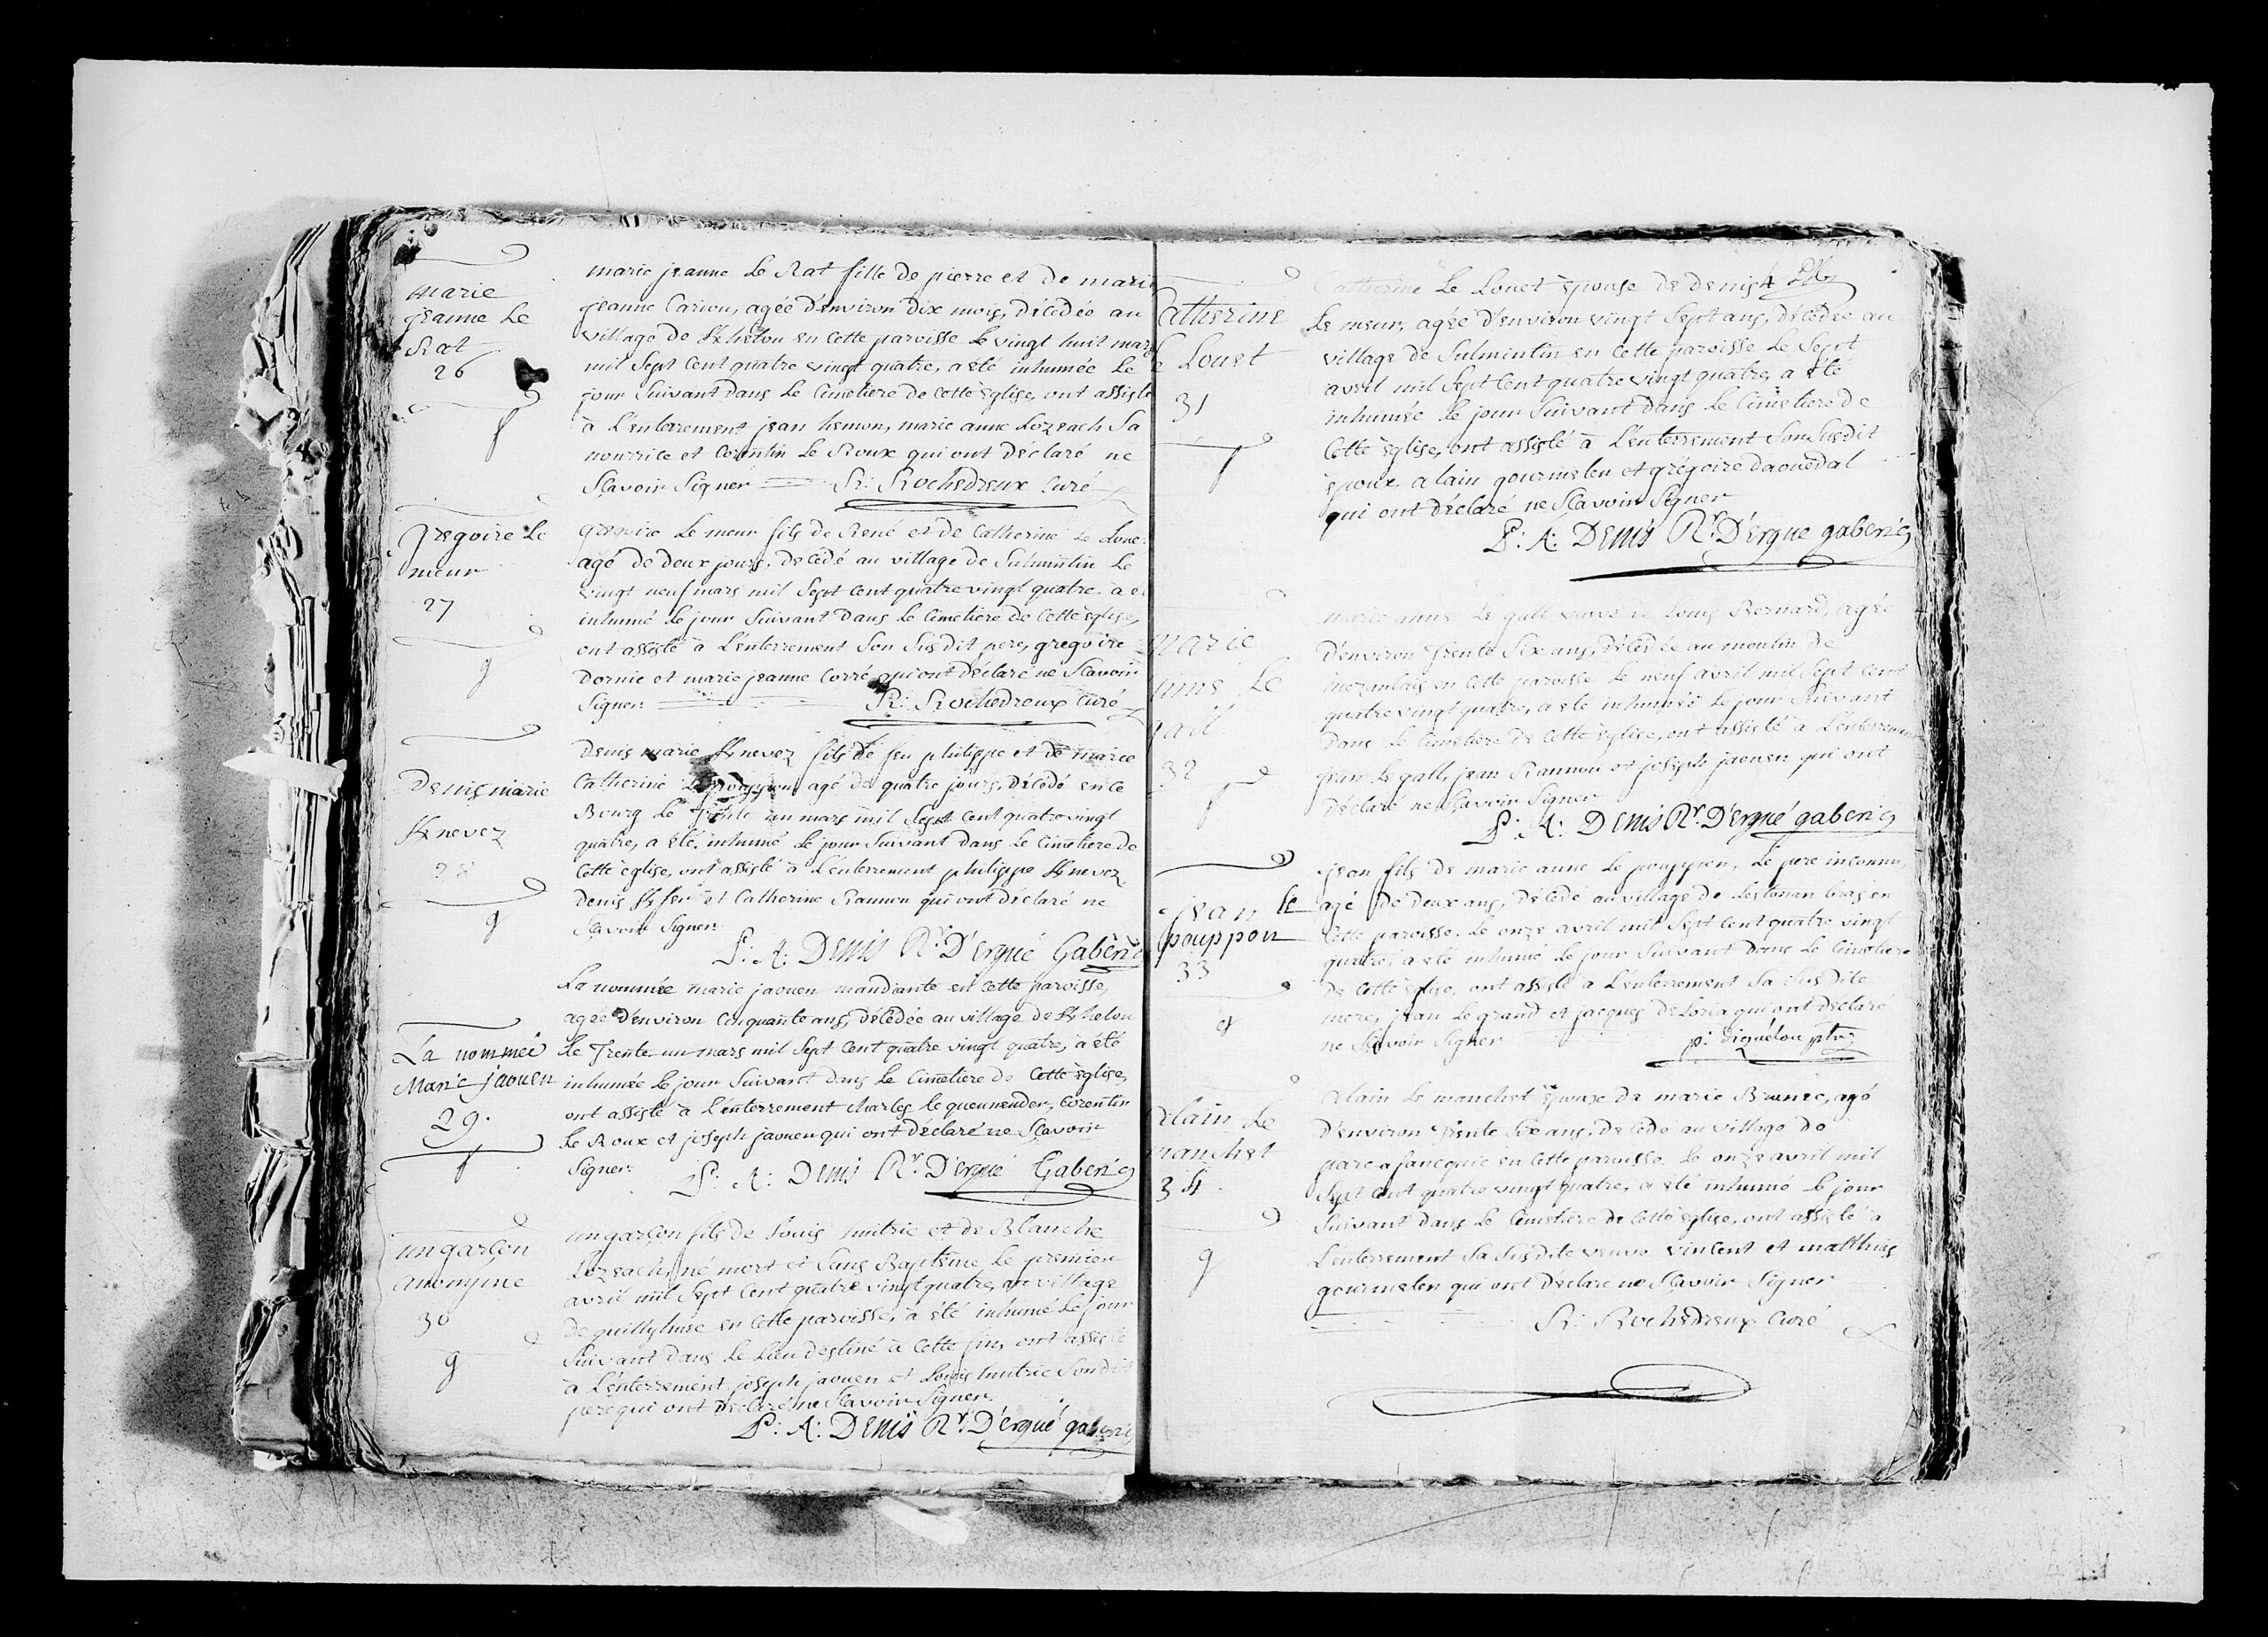 marie
jeanne Le
Rat
26
marie jeanne Le Rat fille de pierre et de marie
jeanne Cariou, agée d'environ dix mois, décédée au
village de Khelou en cette paroisse Le vingt huit mars
mil Sept Cent quatre vingt quatre, a été inhumée Le
jour Suivant dans Le Cimetiere de cette Eglise, ont assisté
à L'enterrement jean hemon, marie anne Lozeach Sa
nourrice et Corentin Le Roux qui ont déclaré ne
Sçavoir Signer R: Rochedreux Curé
gregoire Le
meur
27
gregoire Le meur fils de René et de Catherine Le Loue
agé de deux jours, décédé au village de Sulmintin Le
vingt neuf mars mil Sept cent quatre vingt quatre. a é
inhumé Le jour Suivant dans Le Cimetiere de Cette Eglise,
ont assisté à L'enterrement Son Susdit pere, gregoire
Dornic et marie jeanne Corré qui ont déclaré ne Scavoir
Signer R: Rochedreux Curé
Denis marie
Knevez
28
Denis marie Knevez fils de feu philippe et de marie
Catherine agé de quatre jours, décédé en ce
Bourg Le Trente un mars mil Sept Cent quatre vingt
quatre, a été inhumé Le jour Suivant dans Le Cimetiere de
Cette église, ont assisté à L'enterrement philippe Knevez
Denis et Catherine Rannou qui ont déclaré ne
Sçavoir Signer
P: A: Denis Rr. D'ergué Gaberic
La nommée
Marie jaouen
29.
La nommée marie jaouen mandiante en Cette paroisse,
agée d'environ Cinquante ans, décédée au village de Khelou
Le Trente un mars mil Sept Cent quatre vingt quatre, a été
inhumée Le jour Suivant dans Le Cimetiere de Cette église,
ont assisté à L'enterrement Charles Le queunender, Corentin
Le Roux et joseph jaouen qui ont déclaré ne Sçavoir
Signer P: A: Denis Rr. D'ergué Gaberic
un garçon
anonyme
30
un garçon fils de Louis huitric et de Blanche
Lozeach, né mort et Sans Baptême Le premier
avril mil Sept Cent quatre vingt quatre, au village
de quillyhuec en Cette paroisse, a été inhumé Le jour
Suivant dans Le Lieu destiné à Cette fin, ont assisté
à L'enterrement joseph jaouen et Louis huitric Sondit
pere qui ont déclaré ne Scavoir Signer
P: A: Denis Rr. D'ergué gaberic
Catherine
Le Louet
31
Catherine Le Louet épouse de Denis
Le meur, agée d'environ vingt Sept ans, décédée au
village de Sulmintin en Cette paroisse Le Sept
avril mil Sept Cent quatre vingt quatre, a été
inhumée Le jour Suivant dans Le Cimetiere de
Cette église, ont assisté à L'enterrement Son Susdit
époux alain gourmelen et grégoire daouedal
qui ont déclaré ne Scavoir Signer
P: A: Denis Rr. D'ergue gaberic
Marie
anne Le
gall
32
marie anne Le gall veuve de Louis Bernard, agée
d'environ Trente Six ans, décédée au moulin de
en Cette paroisse Le neuf avril mil Sept Cent
quatre vingt quatre, a été inhumée Le jour Suivant
dans Le Cimetiere de Cette église, ont assisté à L'enterrement
jean Le gall, jean Rannou et joseph jaouen qui ont
déclaré ne Sçavoir Signer
P: A: Denis Rr. D'ergué gaberic
jean le
pouppon
33
jean fils de marie anne Le pouppon, Le pere inconnu,
agé de deux ans, décédé au village de Lestonan bras en
Cette paroisse. Le onze avril mil Sept Cent quatre vingt
quatre, a été inhumé Le jour Suivant dans Le Cimetiere
de Cette église, ont assisté à L'enterrement Sa Susdite
mere, jean Le grand et jacques deLoria qui ont déclaré
ne Scavoir Signer p: ptre
alain Le
manchet
34
alain Le manchet époux de marie Brunic, agé
d'environ Trente Six ans, décédé au village de
en Cette paroisse. Le onze avril mil
Sept Cent quatre vingt quatre, a été inhumé Le jour
Suivant dans Le Cimetiere de Cette église, ont assisté à
L'enterrement Sa Susdite veuve vincent et matthias
gourmelen qui ont déclaré ne Scavoir Signer
R: Rochedreux Curé